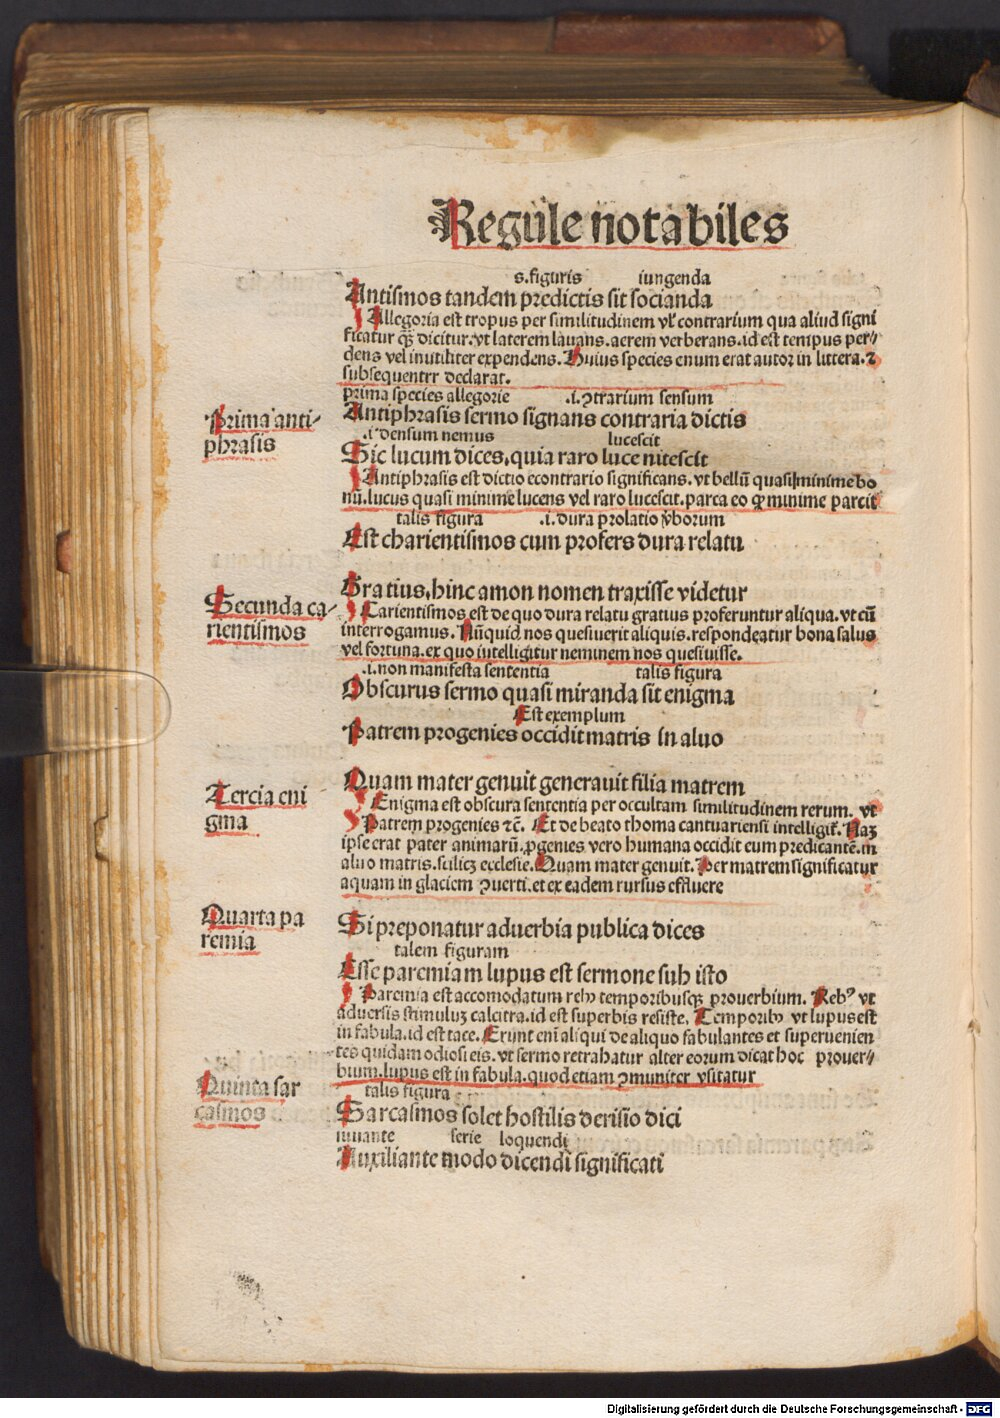 Regule notabiles
s.figuris iungenda
Antismos tandem predictis sit socianda
Allegoria est tropus per similitudinem vl' contrarium qua aliud signi
ficatur qȝ dicitur.vt laterem lauans.aerem verberans.id est tempus per⸗
dens vel inutiliter expendens.Huius species enumerat autor in littera.⁊
subsequentrr declarat.
prima species allegorie .i.ꝯtrarium sensum
Prima anti⸗
phrasis
Antiphrasis sermo signans contraria dictis
.i densum nemus lucescit
Sic lucum dices,quia raro luce nitescit
Antiphrasis est dictio econtrario significans.vt bellū quasi minime bo
nū.lucus quasi minime lucens vel raro lucescit.parca eo ꝙ minime parcit
talis figura .i.dura prolatio v̓borum
Est charientismos cum profers dura relatu
Secunda ca⸗
rientismos
Gratius,hinc amon nomen traxisse videtur
Carientismos est de quo dura relatu gratius proferuntur aliqua.vt cū
interrogamus.Nūquid nos quesiuerit aliquis.respondeatur bona salus
vel fortuna.ex quo intelligitur neminem nos quesiuisse.
.i.non manifesta sententia talis figura
Obscurus sermo quasi miranda sit enigma
Est exemplum
Patrem progenies occidit matris in aluo
Tercia eni
gma
Quam mater genuit generauit filia matrem
Enigma est obscura sententia per occultam similitudinem rerum. vt
Patrem progenies ⁊c̄. Et de beato thoma cantuariensi intelligit̄.Naȝ
ipse erat pater animarū.ꝓgenies vero humana occidit eum predicantē.in
aluo matris.scilicȝ ecclesie.Quam mater genuit.Per matrem significatur
aquam in glaciem ꝯuerti.et ex eadem rursus effluere
Quarta pa
remia
Si preponatur aduerbia publica dices
talem figuram
Esse paremiam lupus est sermone sub isto
Paremia est accomodatum rebꝰ temporibusqȝ prouerbium. Rebꝰ vt
aduersis stimuluȝ calcitra.id est superbis resiste. Temporibꝰ vt lupus est
in fabula.id est tace. Erunt enī aliqui de aliquo fabulantes et superuenien
tes quidam odiosi eis.vt sermo retrahatur alter eorum dicat hoc prouer⸗
bium.lupus est in fabula.quod etiam ꝯmuniter vsitatur
Quinta sar
casmos
talis figura
Sarcasmos solet hostilis derisio dici
iuuante serie loquendi
Auxiliante modo dicendi significati
Digitalisierung gefördert durch die Deutsche Forschungsgemeinschaft - DFG